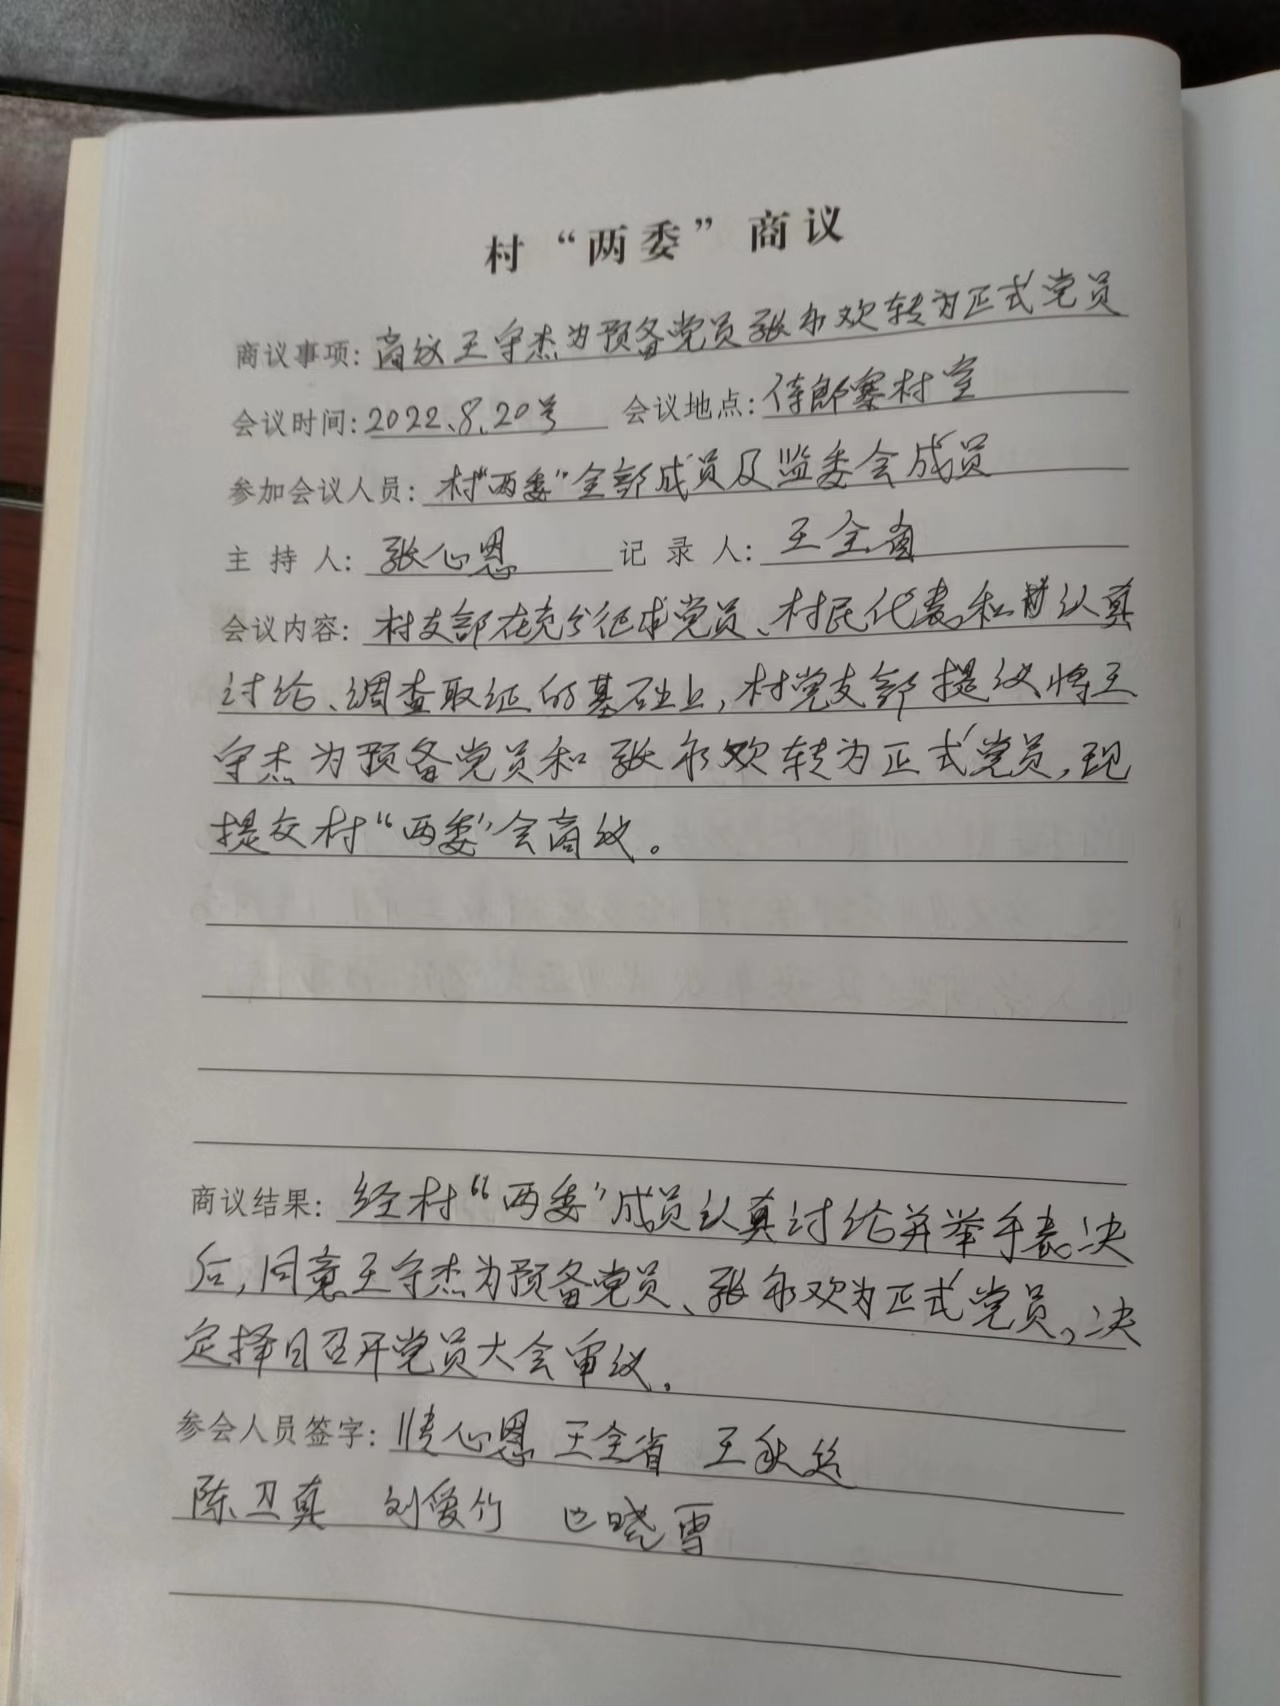 村“两委”商议
商议事项：商议王守杰为预备党员张永欢转为正式党员
会议时间：2022.8.20号 会议地点：侍郎寨村室
参加会议人员：村“两委”全部成员及监委会成员
主持人：张心恩 记录人：王全省
会议内容：村支部在充分征求党员、村民代表和认真
讨论、调查取证的基础上，村党支部提议将王
守杰为预备党员和张永欢转为正式党员，现
提交村“两委”会商议。
商议结果：经村“两委”成员认真讨论并举手表决
后，同意王守杰为预备党员、张永欢为正式党员。决
定择日召开党员大会审议。
参会人员签字：张心恩 王全省 王秋
陈卫真 刘爱竹 晓雪